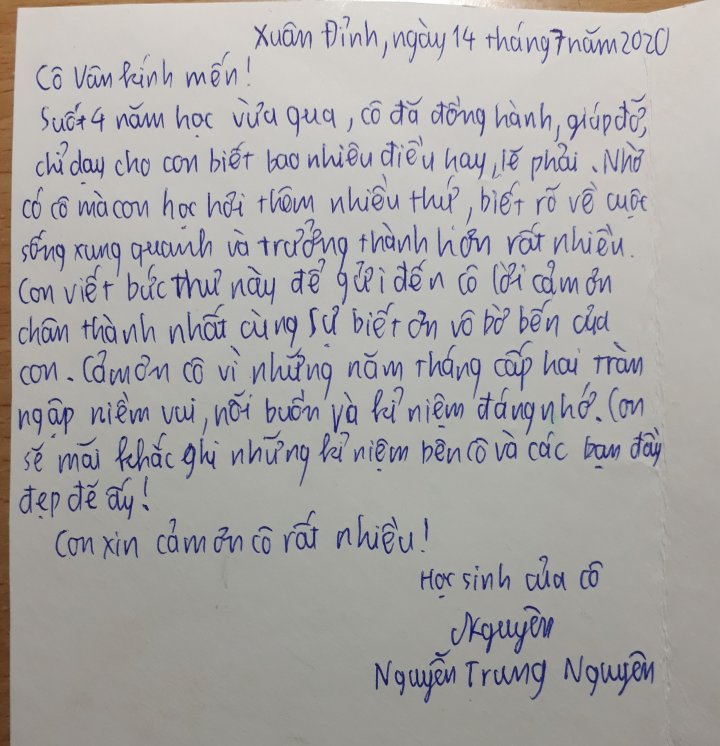 Xuân Đỉnh, ngày 14 tháng 7 năm 2020
Cô Vân kính mến!
Suốt 4 năm học vừa qua, cô đã đồng hành, giúp đỡ,
chỉ dạy cho con biết bao nhiêu điều hay, lẽ phải. Nhờ
có cô mà con học hỏi thêm nhiều thứ, biết rõ về cuộc
sống xung quanh và trưởng thành hơn rất nhiều.
Con viết bức thư này để gửi đến cô lời cảm ơn
chân thành nhất cùng sự biết ơn vô bờ bến của
con. Cảm ơn cô vì những năm tháng cấp hai tràn
ngập niềm vui, nỗi buồn và kỉ niệm đáng nhớ. Con
sẽ mãi khắc ghi những kỉ niệm bên cô và các bạn đầy
đẹp đẽ ấy!
Con xin cảm ơn cô rất nhiều!
Học sinh của cô
Nguyên
Nguyễn Trung Nguyên